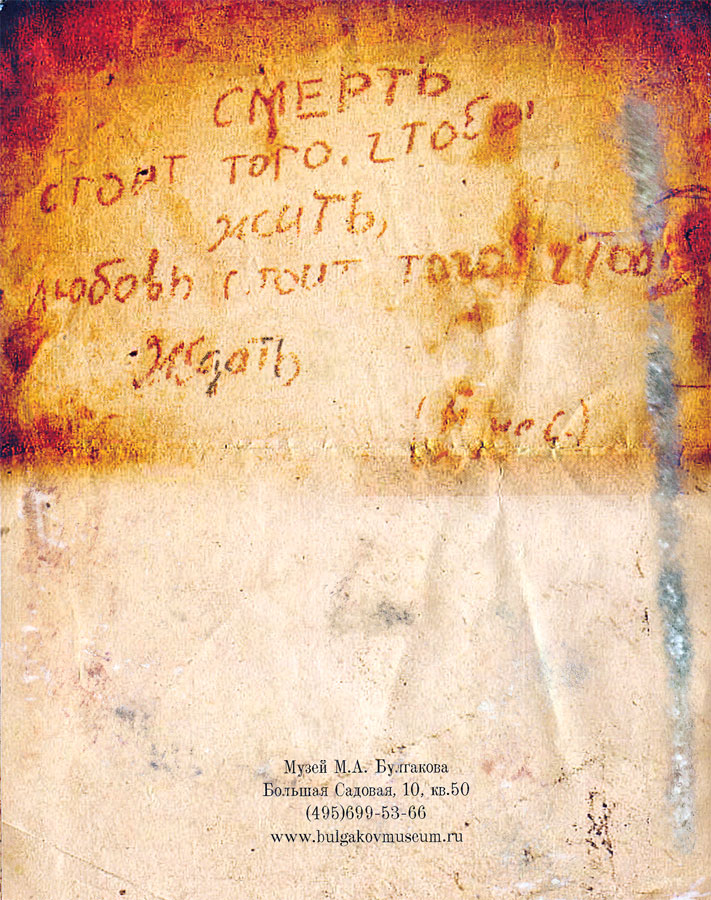 СМЕРТЬ
стоит того, чтобы
жить,
любовь стоит того чтоб
ждать
Музей М.А. Булгакова
Большая Садовая, 10, кв.50
(495)699-53-66
www.bulgakovmuseum.ru